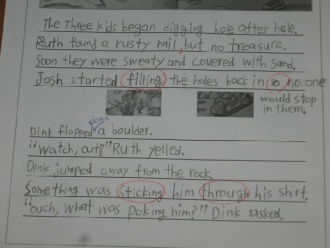 The Three kids began digging hole after hole.
Ruth found a rusty nail, but no treasure.
Soon they were sweaty and covered with sand.
Josh started filling the holes back in so no one
would step
in them.
Dink flopped down a boulder.
"watch, out!" Ruth yelled.
Dink jumped away from the rock.
Something was sticking him through his shirt.
"ouch, what was poking him?" Dink asked.